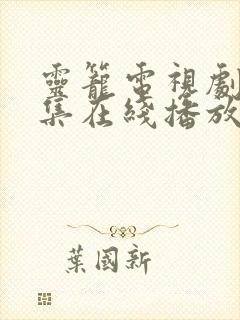 靈籠電視劇
集在綫播放
葉國新